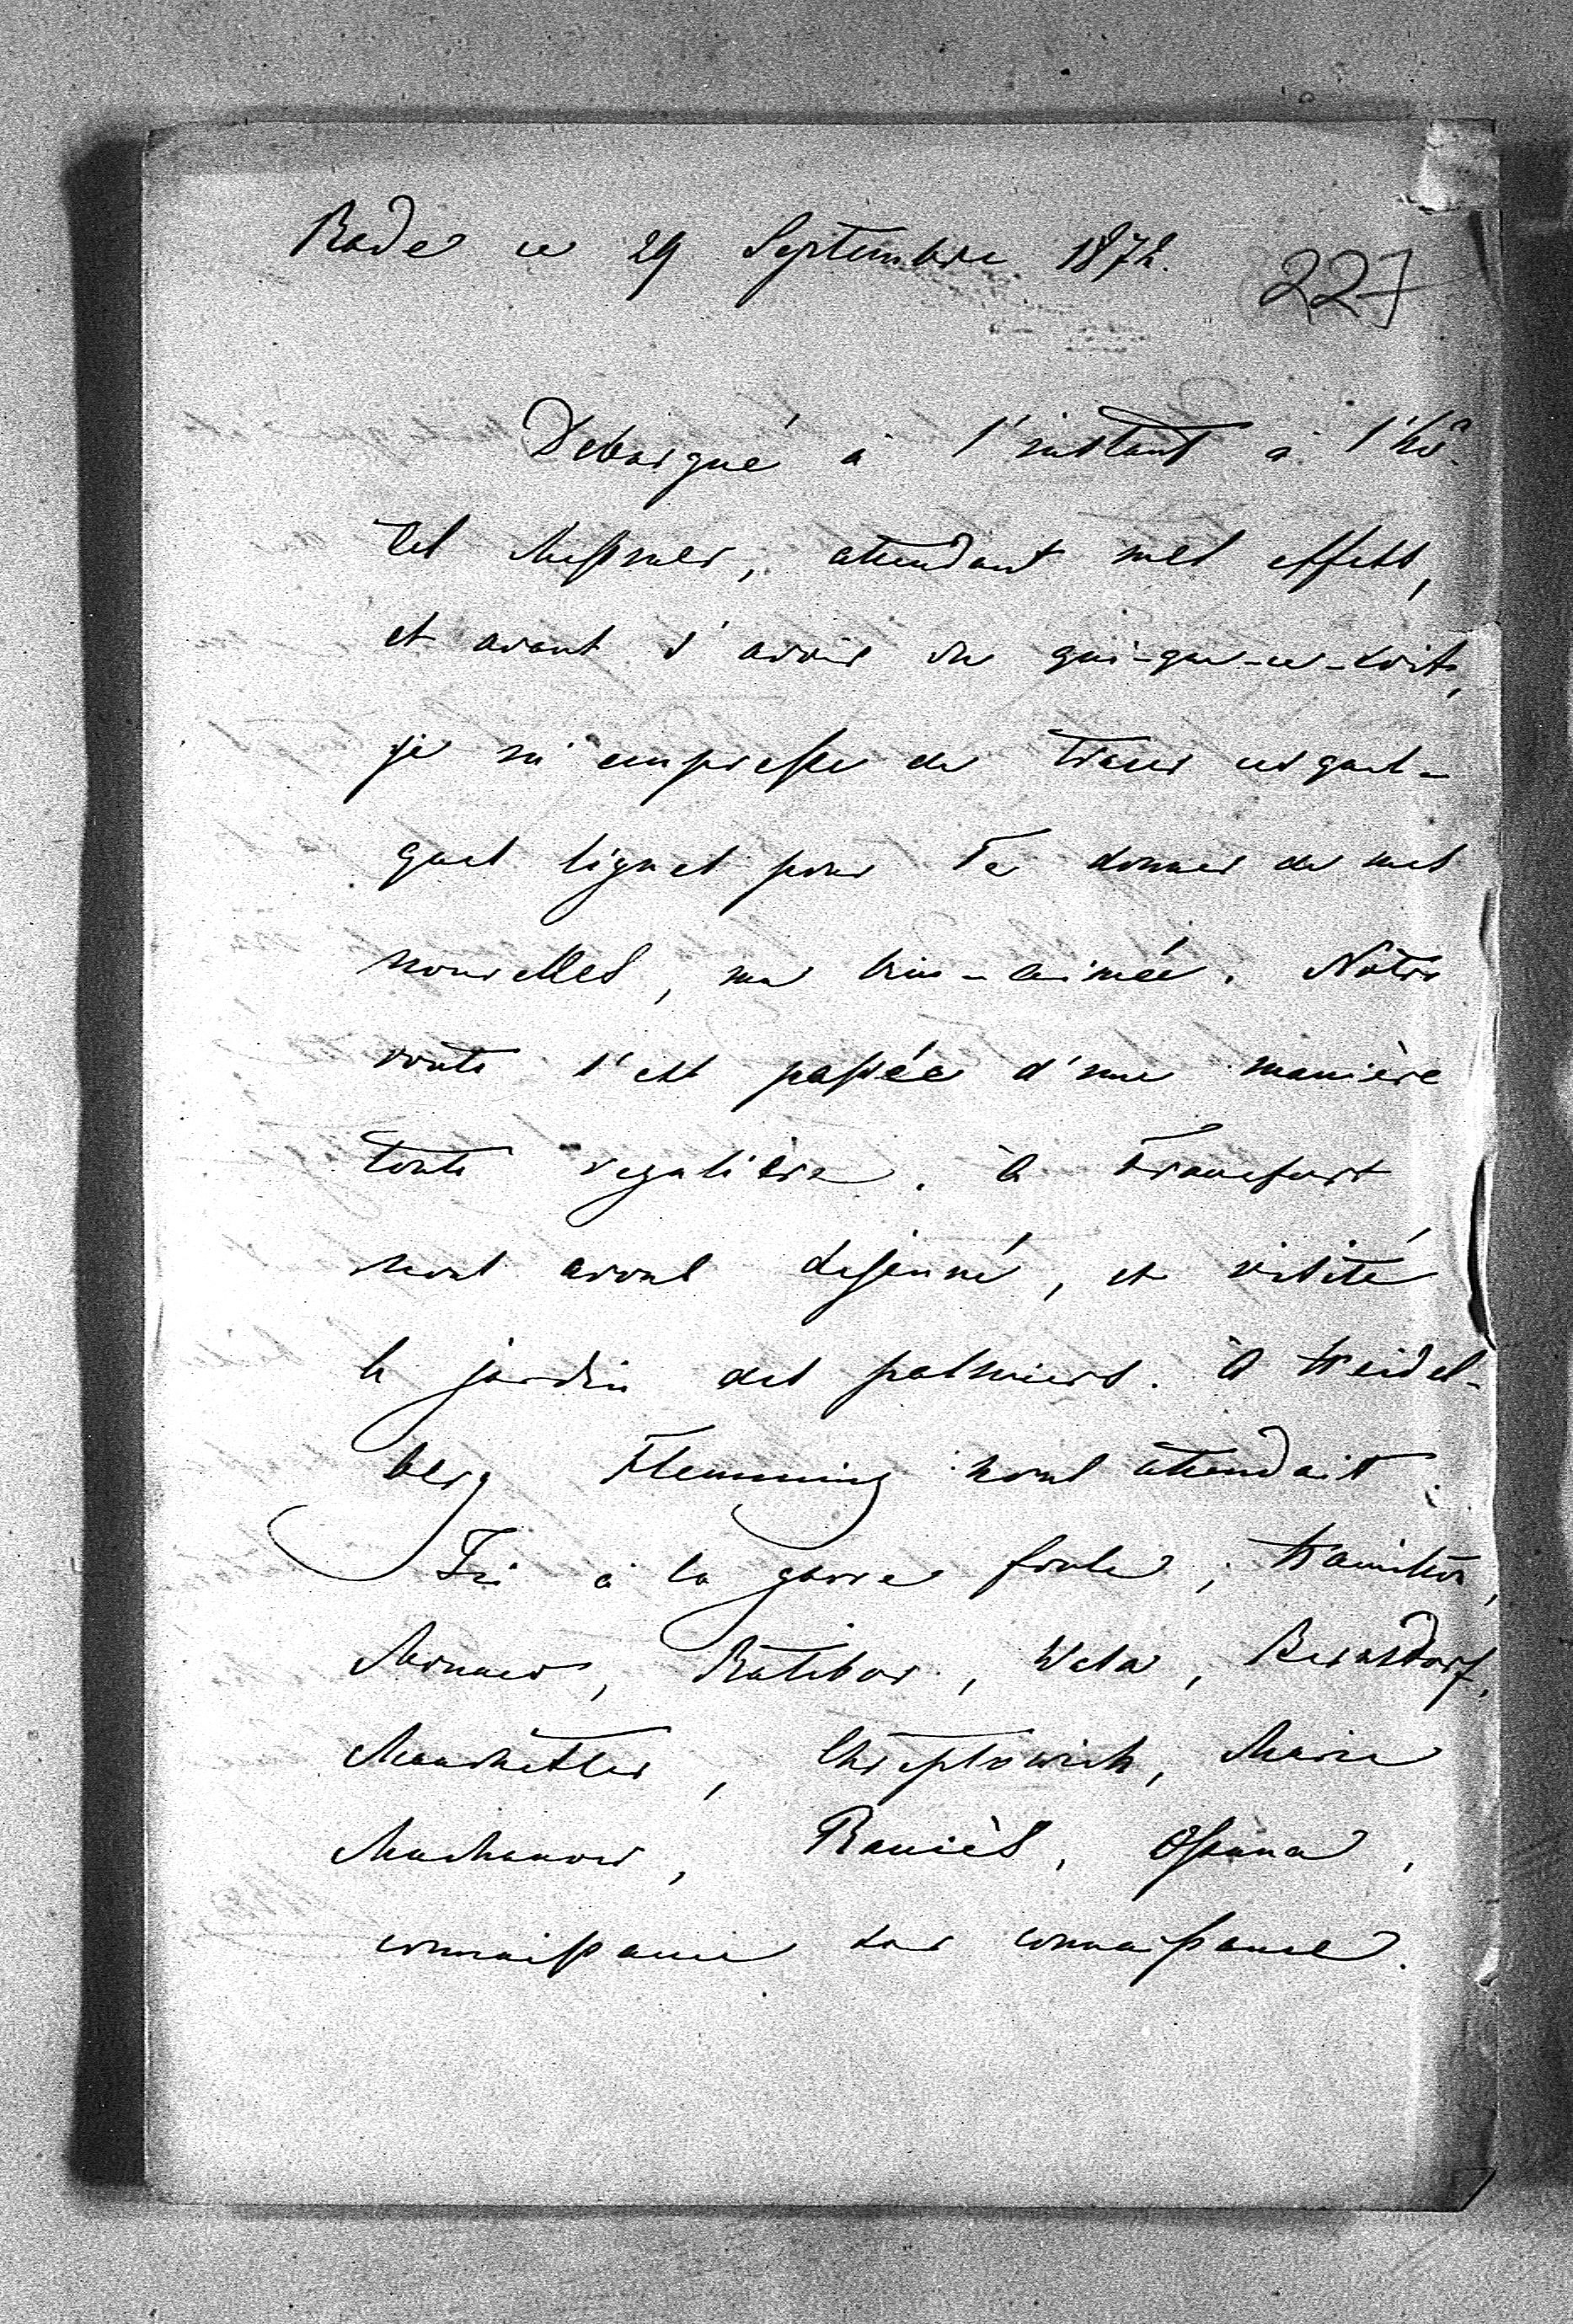 Bade ce 29 Septembre 1872.
227
Debarqué à l'instant à l'hô-
tel Messmer, attendant mes effets,
et avant d'avoir vu qui-que-ce-soit,
je m'empresse de tracer ces quel-
ques lignes pour Te donner de mes
nouvelles, ma bien-aimée. Notre
route s'est passée d'une manière
toute regulière. À Francfort
nous avons dejeuné, et visité
le jardin des palmiers. À Heidel-
berg Flemming nous attendait.
Ici à la garre foule; Hamilton,
Ratibor, Bernstorf,
Marie
Ossuna,
connaissance sur connaissance.